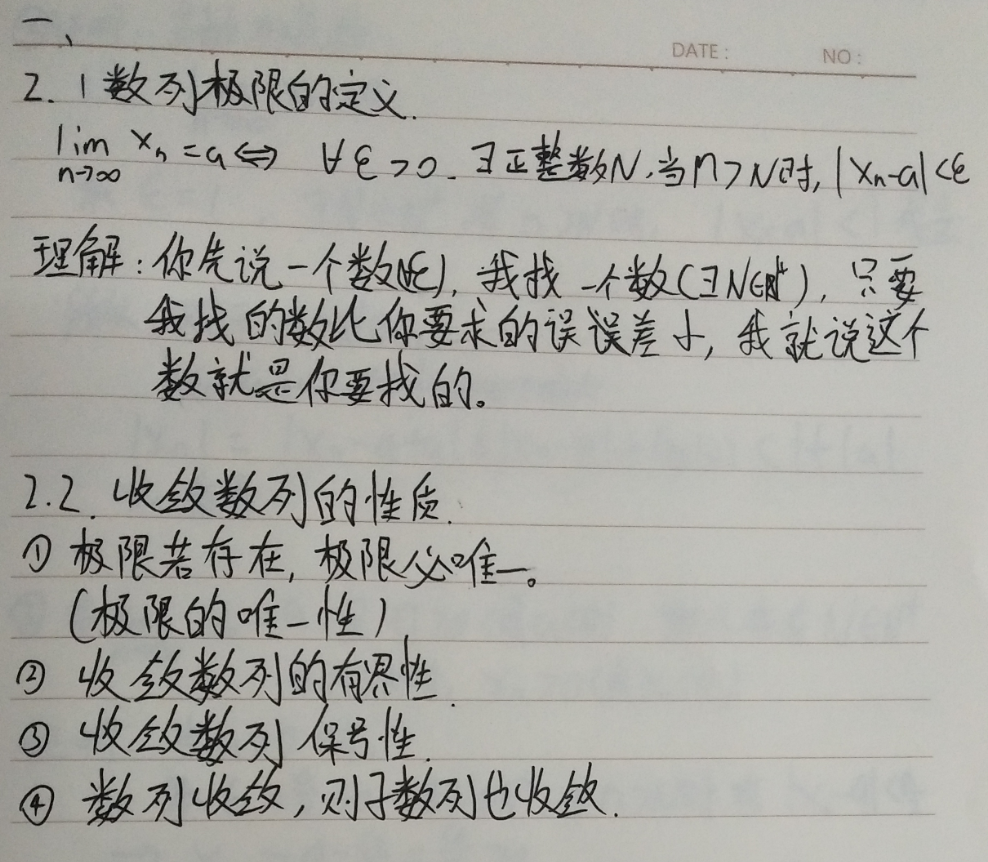 一、
DATE: NO:
2.1 数列极限的定义.
lim n→∞ xn = a ⇔ ∀ε>0. ∃正整数N,当n>N时,|xn-a|<ε
理解:你先说一个数(∀ε),我找一个数(∃N∈N⁺),只要
我找的数比你要求的误误差小,我就说这个
数就是你要找的。
2.2.收敛数列的性质.
① 极限若存在,极限必唯一。
(极限的唯一性)
② 收敛数列的有界性.
③ 收敛数列保号性.
④ 数列收敛,则子数列也收敛.